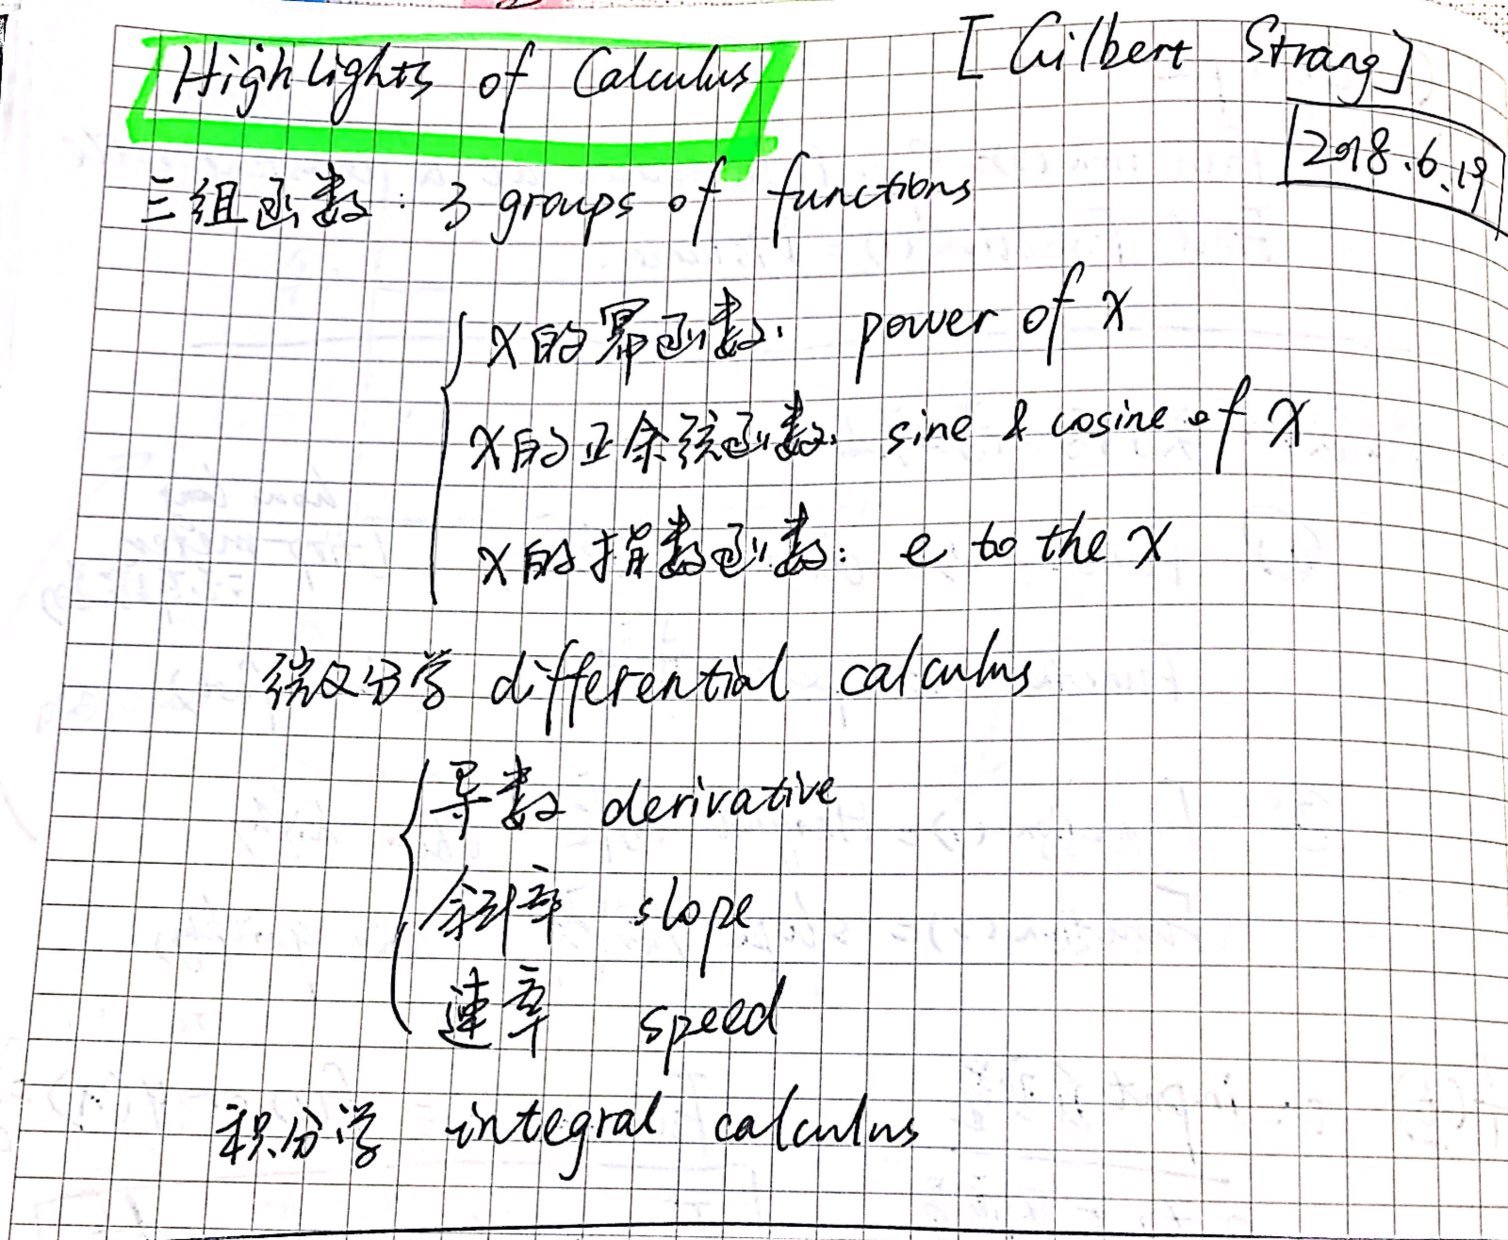 Highlights of Calculus [Gilbert Strang]
2018.6.19
三组函数: 3 groups of functions
x的幂函数: power of x
x的正余弦函数: sine & cosine of x
x的指数函数: e to the x
微分学 differential calculus
导数 derivative
斜率 slope
速率 speed
积分学 integral calculus